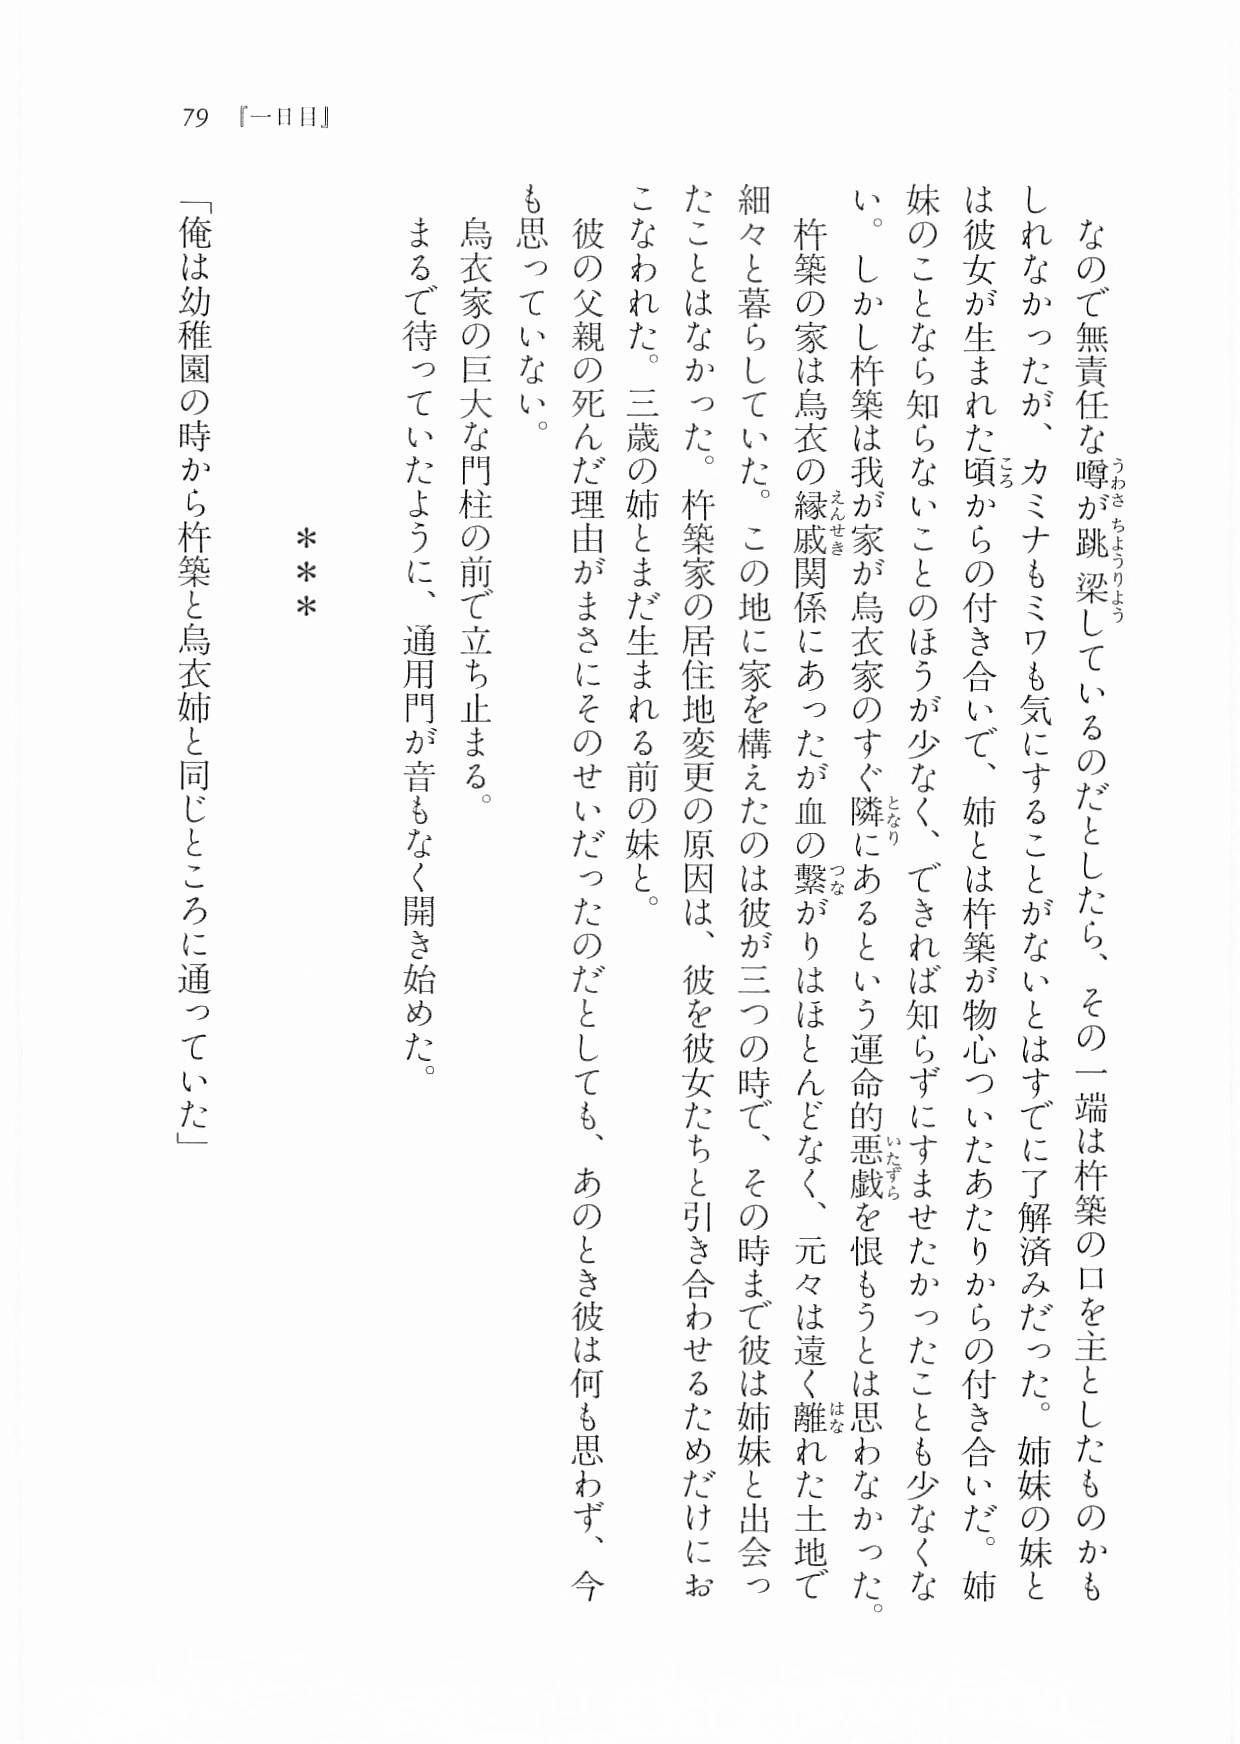 79 『一日目』
なので無責任な噂が跳梁しているのだとしたら、その一端は杵築の口を主としたものかも
しれなかったが、カミナもミワも気にすることがないとはすでに了解済みだった。姉妹の妹と
は彼女が生まれた頃からの付き合いで、姉とは杵築が物心ついたあたりからの付き合いだ。姉
妹のことなら知らないことのほうが少なく、できれば知らずにすませたかったことも少なくな
い。しかし杵築は我が家が烏衣家のすぐ隣にあるという運命的悪戯を恨もうとは思わなかった。
杵築の家は烏衣の縁戚関係にあったが血の繋がりはほとんどなく、元々は遠く離れた土地で
細々と暮らしていた。この地に家を構えたのは彼が三つの時で、その時まで彼は姉妹と出会っ
たことはなかった。杵築家の居住地変更の原因は、彼を彼女たちと引き合わせるためだけにお
こなわれた。三歳の姉とまだ生まれる前の妹と。
彼の父親の死んだ理由がまさにそのせいだったのだとしても、あのとき彼は何も思わず、今
も思っていない。
烏衣家の巨大な門柱の前で立ち止まる。
まるで待っていたように、通用門が音もなく開き始めた。
＊＊＊
「俺は幼稚園の時から杵築と烏衣姉と同じところに通っていた」